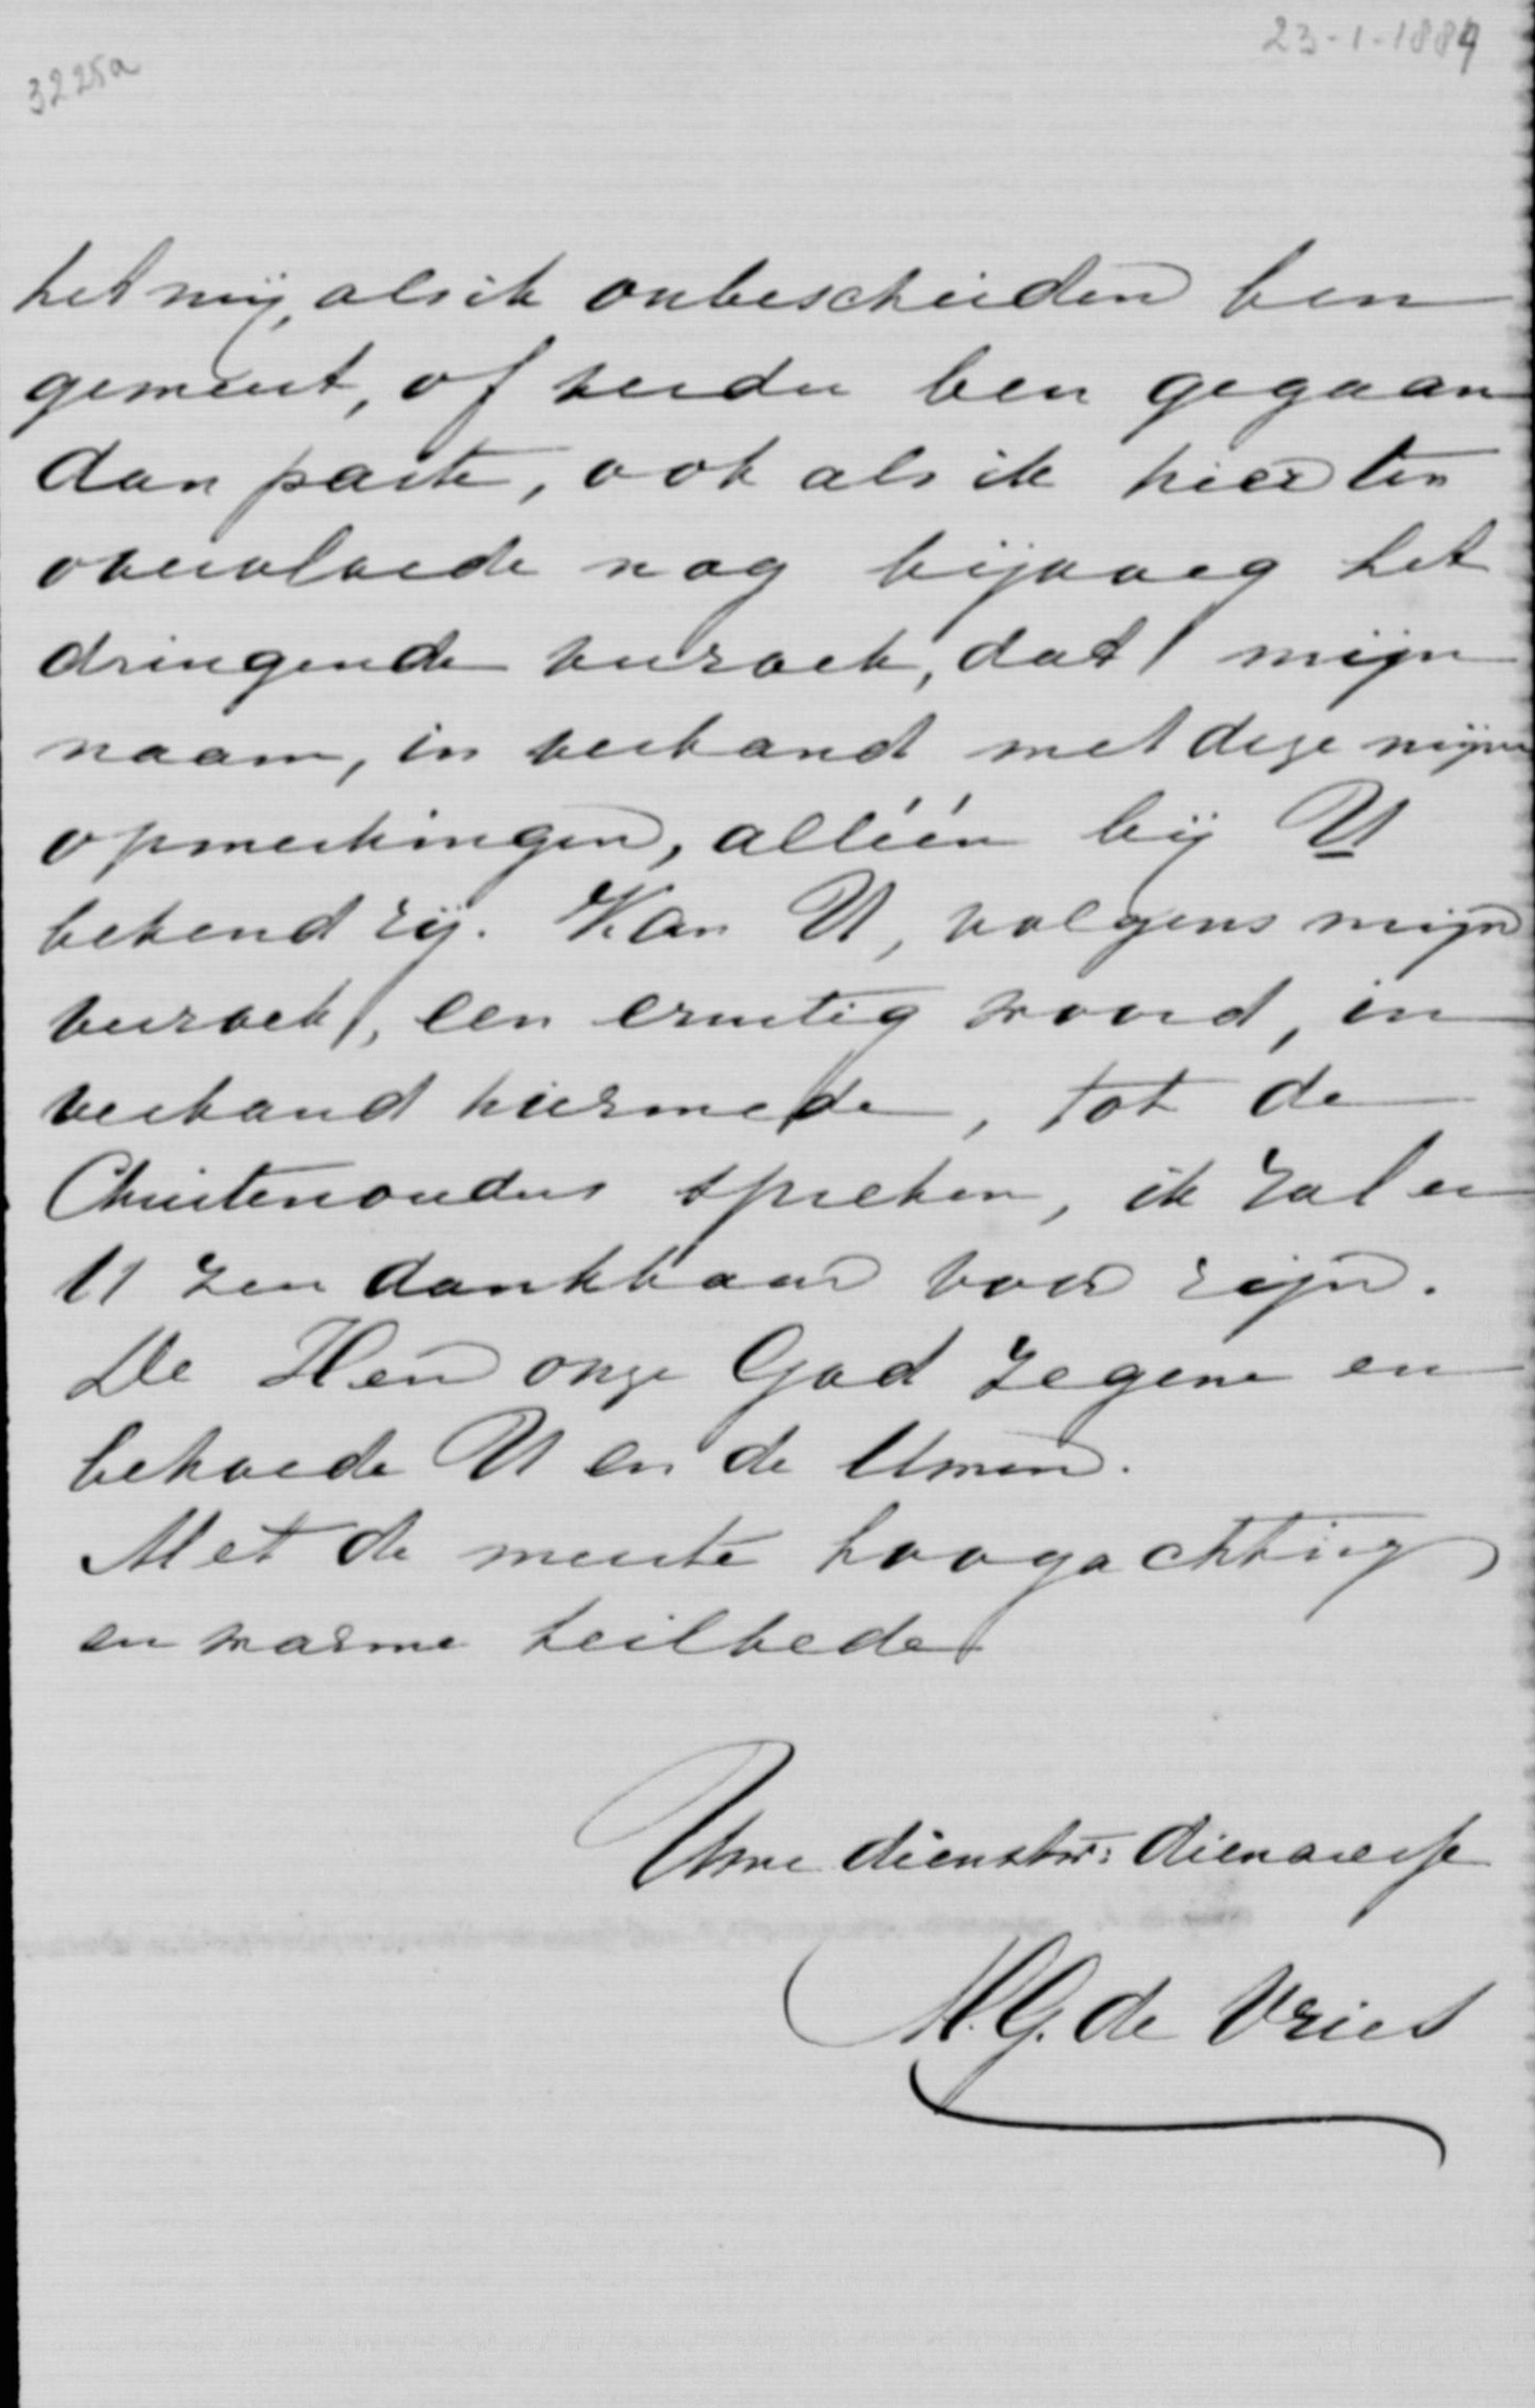 23-1-1889
3225a
het mij, als ik onbescheiden ben
geweest, of verder ben gegaan
dan paste, ook als ik hier ten
overvloede nog bijvoeg het
dringende verzoek, dat mijn
naam, in verband met deze mijne
opmerkingen, alléén bij U
bekend zij. Kan U, volgens mijn
verzoek, een ernstig woord, in
verband hiermede, tot de
Christenouders spreken, ik zal er
U zeer dankbaar voor zijn.
De Heer onze God zegene en
behoede U en de Uwen.
Met de meeste hoogachting
en warme heilbede
Uwe dienstw: dienaresse
M.G. de Vries